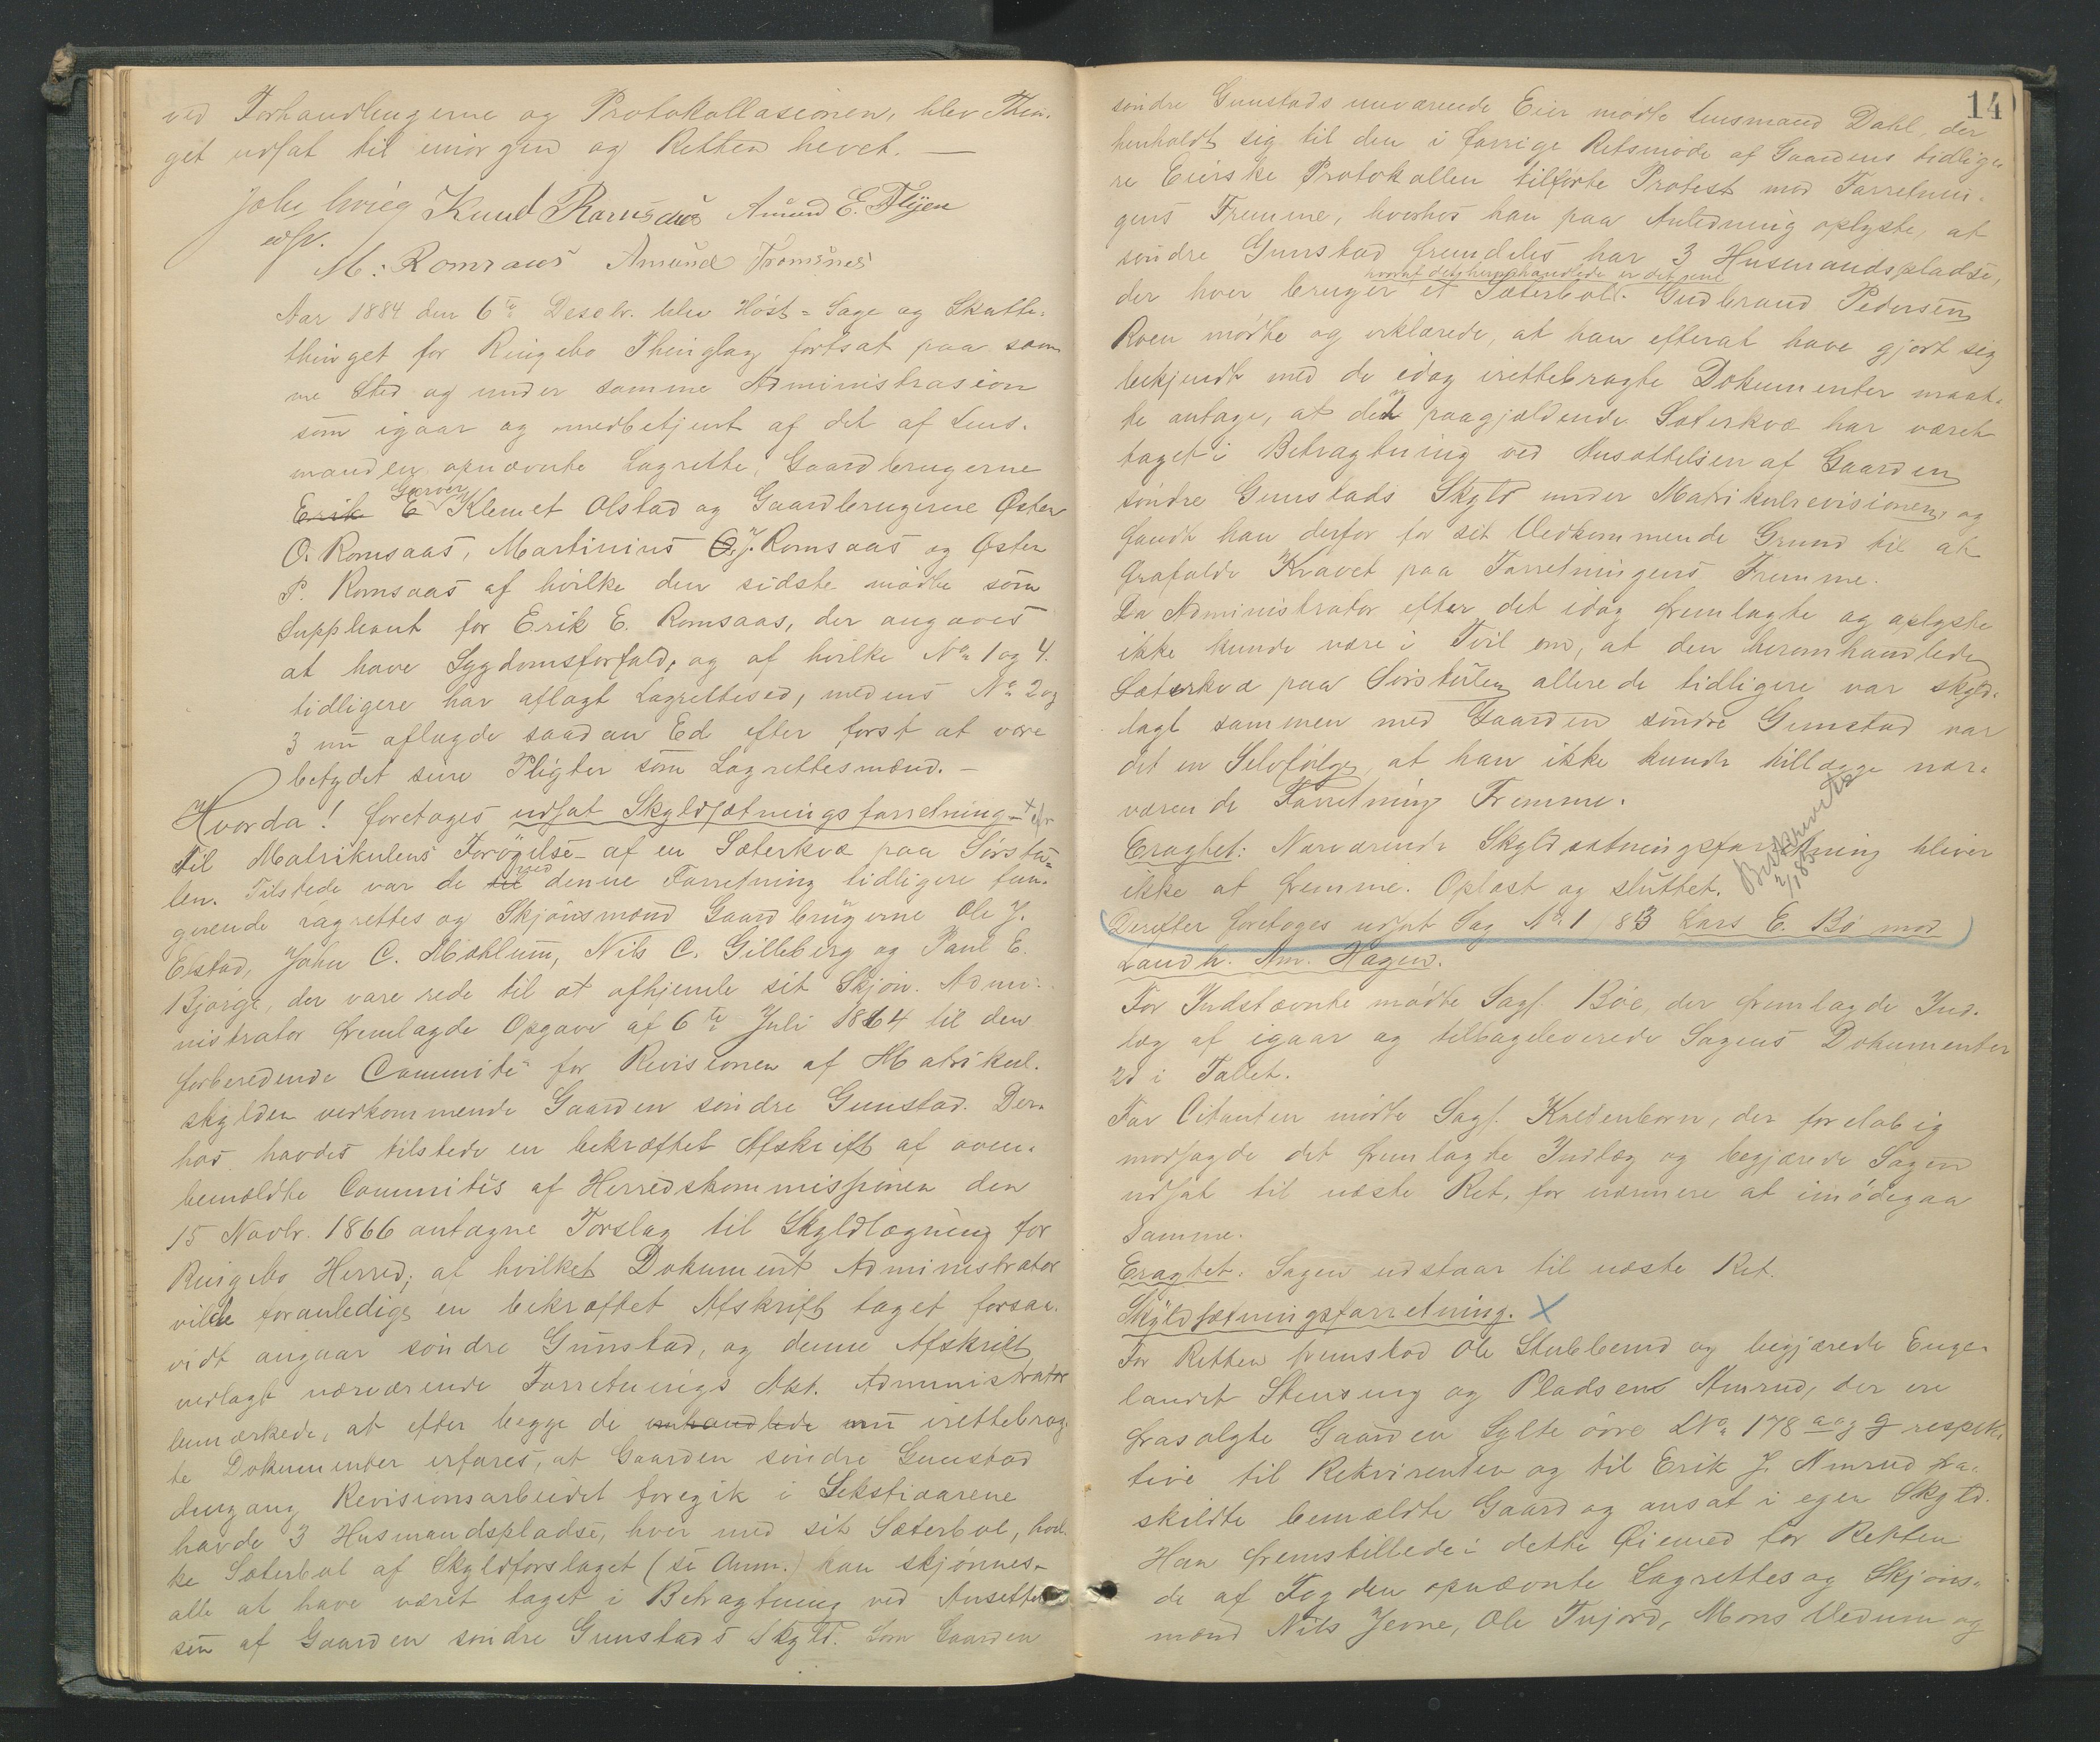 ved Forhandlingerne og Protokollasionen, blev Thin-
get udsat til imorgen og Retten hevet. —
Knud Ramsaas Amund E. Flyen
M: Romsaas Amund Tromsnes
Aar 1884 den 6te Desebr. blev Høst-Sage og Skatte-
thinget for Ringebo Thinglag fortsat paa sam-
me Sted og under samme Administrasion
som igaar og medbetjent af det af Lens-
manden opnævnte Lagrette, Gaardbrugerne
Erik E Garver Klemet Olstad og Gaardbrugerne Østen
O. Romsaas, Martinius J. Romsaas og Østen
P. Romsaas af hvilke den sidste mødte som
Suppleant for Erik E. Romsaas, der angaves
at have Sygdomsforfald, og af hvilke No 1 og 4.
tidligere har aflagt Lagrettesed, medens No 2 og
3 nu aflagde saadan Ed efter først at være
betydet sine Pligter som Lagrettesmænd. —
Hvorda! foretoges udsat Skyldsætningsforretning -
til Matrikulens Forøgelse - af en Sæterkvæ paa Sørstu-
len. Tilstede var de til ved denne Forretning tidligere fun-
gerende Lagrettes og Skjønsmænd Gaardbrugerne Ole J.
Elstad, John C. Mæhlum, Nils C. Gilleberg og Paul E.
Bjørge, der vare rede til at afhjemle sit Skjøn. Admi-
nistrator fremlagde Opgave af 6te Juli 1864 til den
forberedende Committé for Revisionen af Matrikul-
skylden vedkommende Gaarden søndre Gunstad. Der-
hos havdes tilstede en bekræftet Afskrift af oven-
bemældte Committés af Herredskommissionen den
15 Novbr. 1866 antagne Forslag til Skyldlægning for
Ringebo Herred; af hvilket Dokument Administrator
vilde foranledige en bekræftet Afskrift taget forsaa-
vidt angaar søndre Gunstad, og denne Afskrift
vedlagt nærværende Forretnings Akt. Administrator
bemærkede, at efter begge de omhandlede nu irettebrag-
te Dokumenter erfares, at Gaarden søndre Gunstad
dengang Revisionsarbeidet foregik i Sekstiaarene
havde 3 Husmandspladse, hver med sit Sæterbol, hvil-
ke Sæterbol af Skyldforslaget (se Anm.) kan skjønnes
alle at have været taget i Betragtning ved Ansættel-
sen af Gaarden søndre Gunstads Skyld. Som Gaarden
14
søndre Gunstads nuværende Eier mødte Lensmand Dahl, der
henholdt sig til den i forrige Retsmøde af Gaardens tidlige-
re Eierske Protokollen tilførte Protest mod Forretnin-
gens Fremme, hvorhos han paa Anledning oplyste, at
søndre Gunstad fremdeles har 3 Husmandspladse,
hvoraf det heromhandlede er det ene
der hver bruger et Sæterbol. Gudbrand Pedersen
Roen mødte og erklærede, at han efterat have gjort sig
bekjendt med de idag irettebragte Dokumenter maat-
te antage, at den paagjældende Sæterkvæ har været
taget i Betragtning ved Ansættelsen af Gaarden
søndre Gunstads Skyld under Matrikulrevisionen, og
fandt han derfor for sit Vedkommende Grund til at
frafalde Kravet paa Forretningens Fremme.
Da Administrator efter det idag fremlagte og oplyste
ikke kunde være i Tvil om, at den heromhandlede
Sæterkvæ paa Sørstulen allerede tidligere var skyld-
lagt sammen med Gaarden søndre Gunstad var
det en Selvfølge, at han ikke kunde tillægge nær-
værende Forretning Fremme.
Eragtet: Nærværende Skyldsætningsforretning bliver
ikke at fremme. Oplæst og sluttet.
Derefter foretoges udsat Sag No 1/83 Lars E. Bø mod
Landh. Am. Hagen.
For Indstævnte mødte Sagf. Bøe, der fremlagde Ind-
læg af igaar og tilbageleverede Sagens Dokumenter
2d i Tallet.
For Citanten mødte Sagf. Kaltenborn, der foreløbig
modsagde det fremlagte Indlæg og begjærede Sagen
udsat til næste Ret, for nærmere at imødegaa
Samme.
Eragtet. Sagen udstaar til næste Ret.
Skyldsætningsforretning. X
For Retten fremstod Ole Stubberud og begjærede Enge-
landet Stenseng og Pladsen Amrud, der ere
frasolgte Gaarden Sylte øvre LNo 178 a og g respek-
tive til Rekvirenten og til Erik J. Amrud fra-
skildte bemældte Gaard og ansat i egen Skyld.
Han fremstillede i dette Øiemed for Retten
de af Fogden opnævnte Lagrettes og Skjøns-
mænd Nils Jevne, Ole Tujord, Mons Vedum og